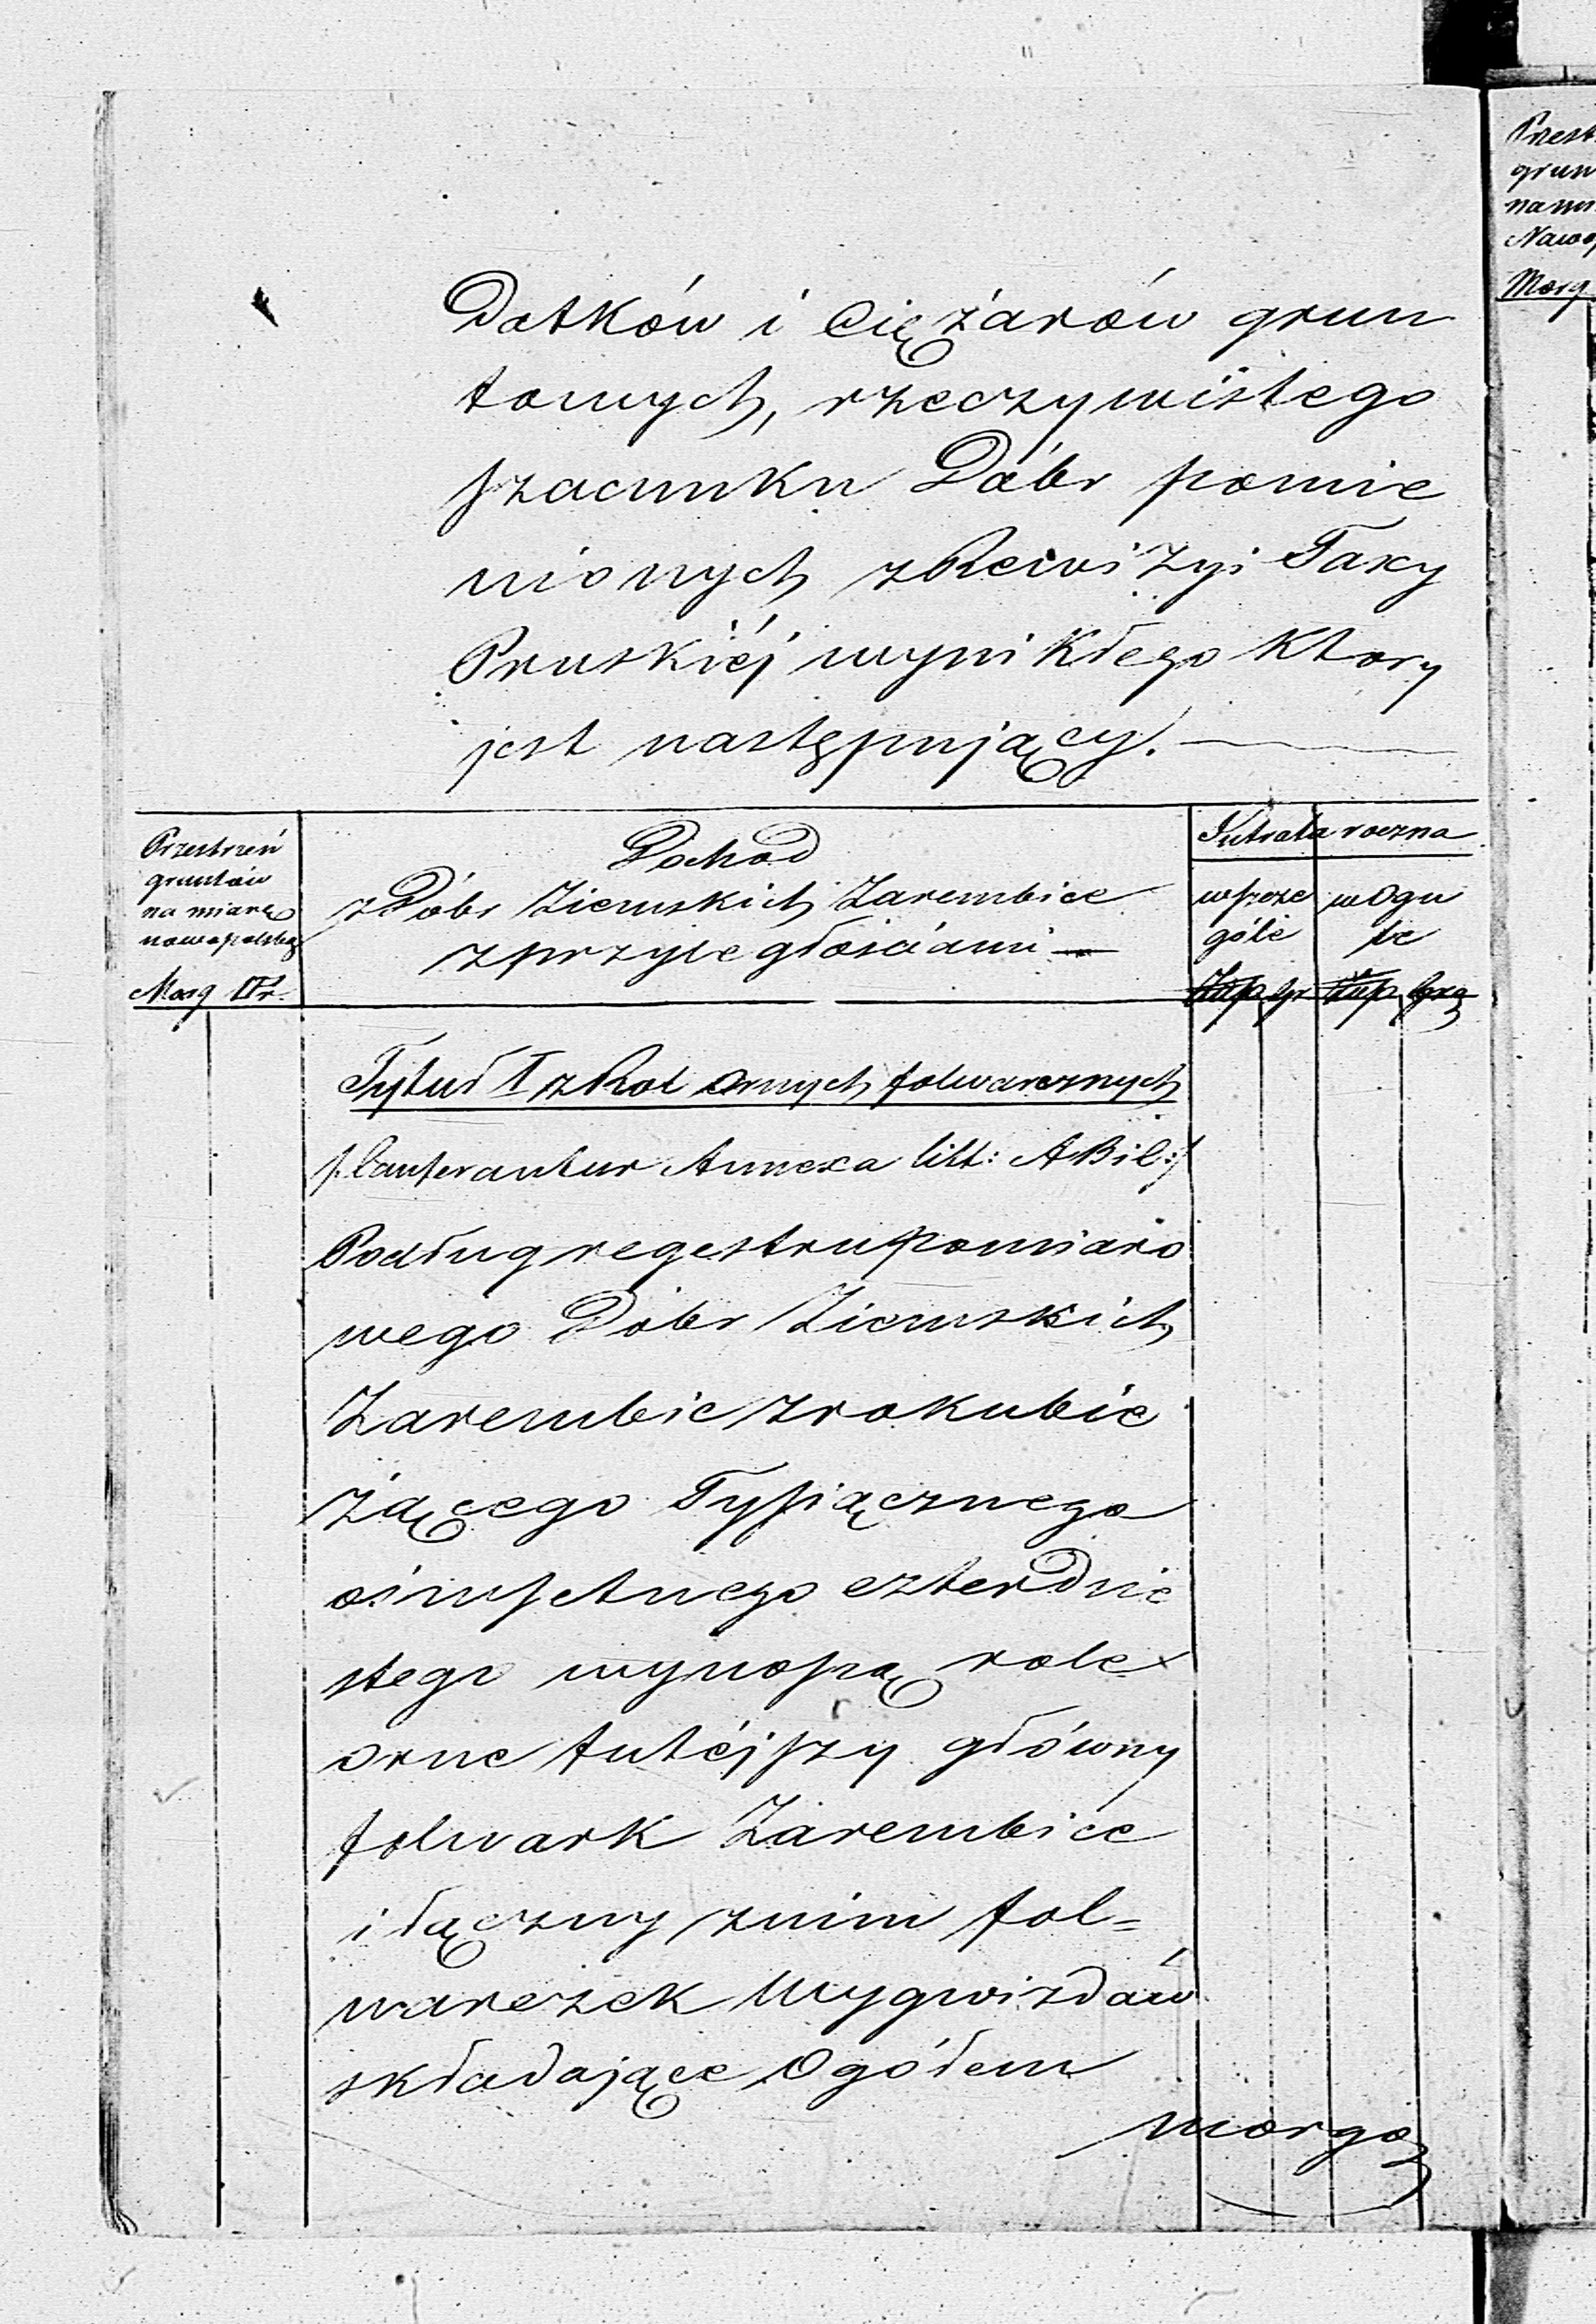 Datków i Ciężarów grun
towych, rzeczywistego
szacunku Dóbr pomie
nionych z Rewizyi Taxy
Pruskiéj wynikłego ktory
jest następujący.
Przestrzeń
gruntów
na miarę
nowopolską
Morg □Pr.
Dochod
z Dóbr Ziemskich Zarembice
z przyległościami
Intrata roczna
w szcze
góle
w Ogu
le
Złp gr Złp
Tytuł I z Rol ornych folwarcznych
Annexa litt: A B i C
Podług regestru pomiaro
wego Dóbr Ziemskich
Zarembic z roku bie
żącego Tysiącznego
ośmsetnego czterdzie
stego wynoszą role
orne tutéjszy główny
folwark Zarembice
i łączny z nim fol=
warczek Wygwizdów
składające Ogółem
morgó
Przest
grun
na mi
Nowo
Morg